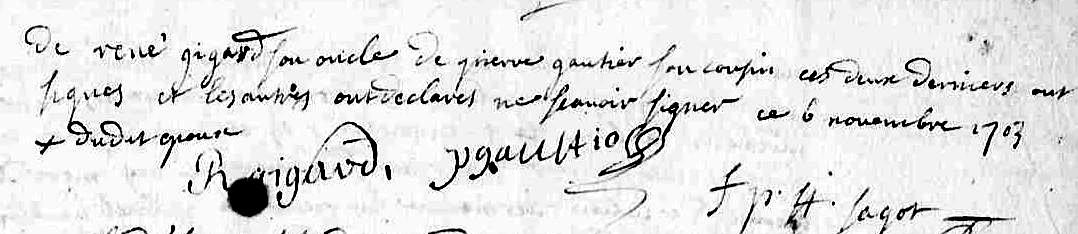 de rené gigard son oncle de pierre gautier son cousin ces deux derniers ont
signes et les autres ont declarés ne scavoir signer ce 6 novembre 1703
+ dudit epoux
R gigard, pgautio
f p. H. jagot